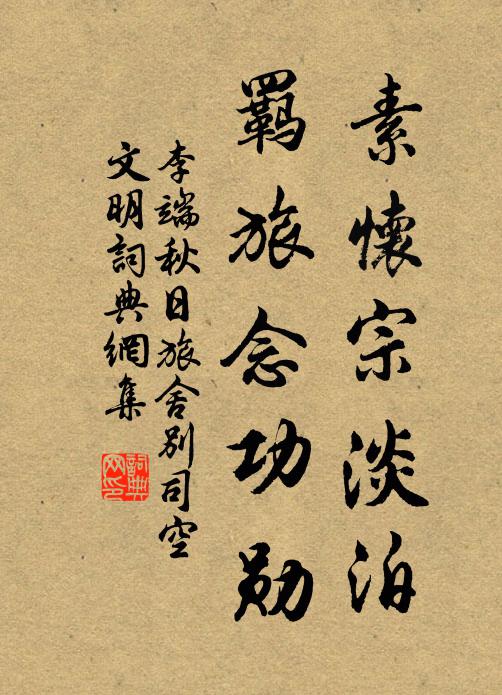 素懷宗淡泊
羈旅念功勛
李端秋日旅舍別司空
文明詞典網集
詞典
网印